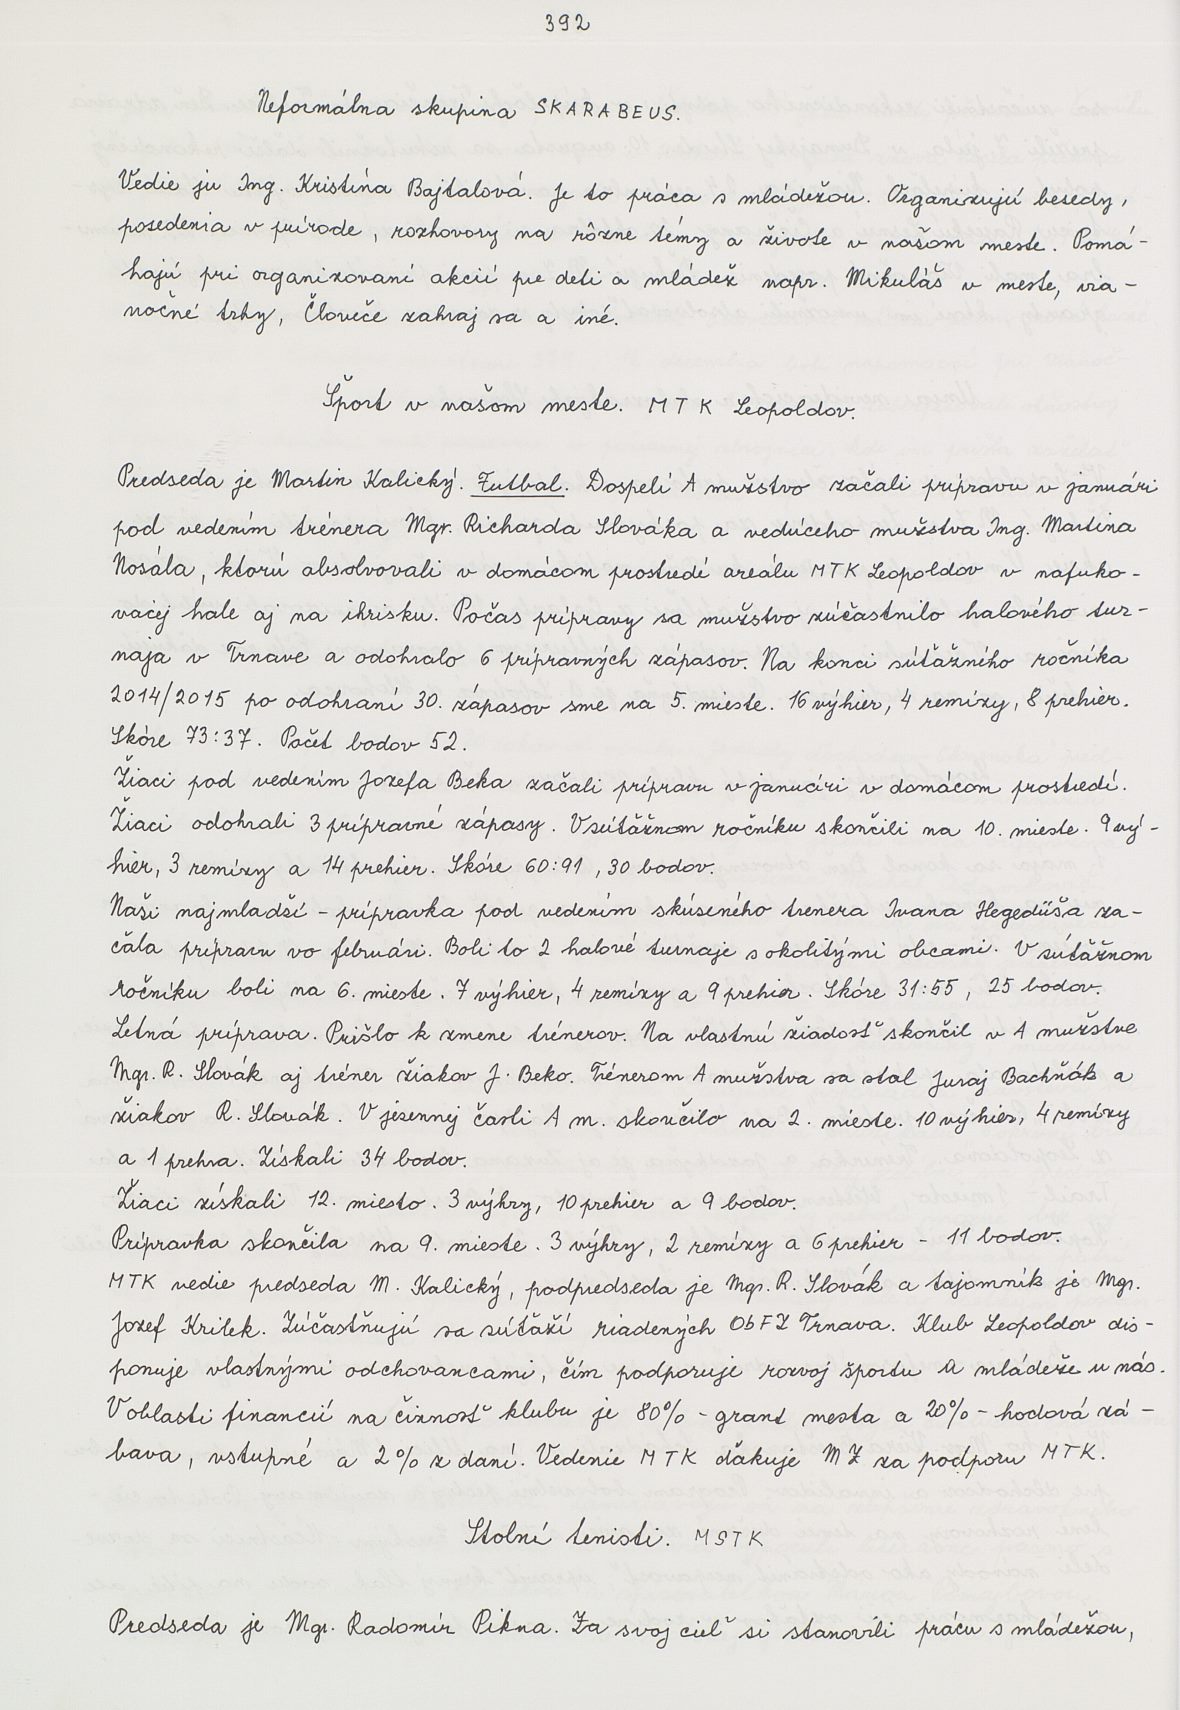 392
Neformálna skupina SKARABEUS.
Vedie ju Ing. Kristína Bajtalová. Je to práca s mládežou. Organizujú besedy,
posedenia v prírode, rozhovory na rôzne témy a živote v našom meste. Pomá-
hajú pri organizovaní akcií pre deti a mládež napr. Mikuláš v meste, via-
nočné trhy, Človeče zahraj sa a iné.
Šport v našom meste. MTK Leopoldov.
Predseda je Martin Kalický. Futbal. Dospelí A mužstvo začali prípravu v januári
pod vedením trénera Mgr. Richarda Slováka a vedúceho mužstva Ing. Martina
Nosála, ktorú absolvovali v domácom prostredí areálu MTK Leopoldov v nafuko-
vacej hale aj na ihrisku. Počas prípravy sa mužstvo zúčastnilo halového tur-
naja v Trnave a odohralo 6 prípravných zápasov. Na konci súťažného ročníka
2014/2015 po odohraní 30. zápasov sme na 5. mieste. 16 výhier, 4 remízy, 8 prehier.
Skóre 73:37. Počet bodov 52.
Žiaci pod vedením Jozefa Beka začali prípravu v januári v domácom prostredí.
Žiaci odohrali 3 prípravné zápasy. V súťažnom ročníku skončili na 10. mieste. 9 vý-
hier, 3 remízy a 14 prehier. Skóre 60:91, 30 bodov.
Naši najmladší - prípravka pod vedením skúseného trenera Ivana Hegedüša za-
čala prípravu vo februári. Boli to 2 halové turnaje s okolitými obcami. V súťažnom
ročníku boli na 6. mieste. 7 výhier, 4 remízy a 9 prehier. Skóre 31:55, 25 bodov.
Letná príprava. Prišlo k zmene trénerov. Na vlastnú žiadosť skončil v A mužstve
Mgr. R. Slovák aj tréner žiakov J. Beko. Trénerom A mužstva sa stal Juraj Bachňák a
žiakov R. Slovák. V jesennej časti A m. skončilo na 2. mieste. 10 výhier, 4 remízy
a 1 prehra. Získali 34 bodov.
Žiaci získali 12. miesto. 3 výhry, 10 prehier a 9 bodov.
Prípravka skončila na 9. mieste. 3 výhry, 2 remízy a 6 prehier - 11 bodov.
MTK vedie predseda M. Kalický, podpredseda je Mgr. R. Slovák a tajomník je Mgr.
Jozef Krilek. Zúčastňujú sa súťaží riadených ObFZ Trnava. Klub Leopoldov dis-
ponuje vlastnými odchovancami, čím podporuje rozvoj športu a mládeže u nás.
V oblasti financií na činnosť klubu je 80% - grant mesta a 20% - hodová zá-
bava, vstupné a 2% z daní. Vedenie MTK ďakuje MZ za podporu MTK.
Stolní tenisti. MSTK
Predseda je Mgr. Radomír Pikna. Za svoj cieľ si stanovili prácu s mládežou,